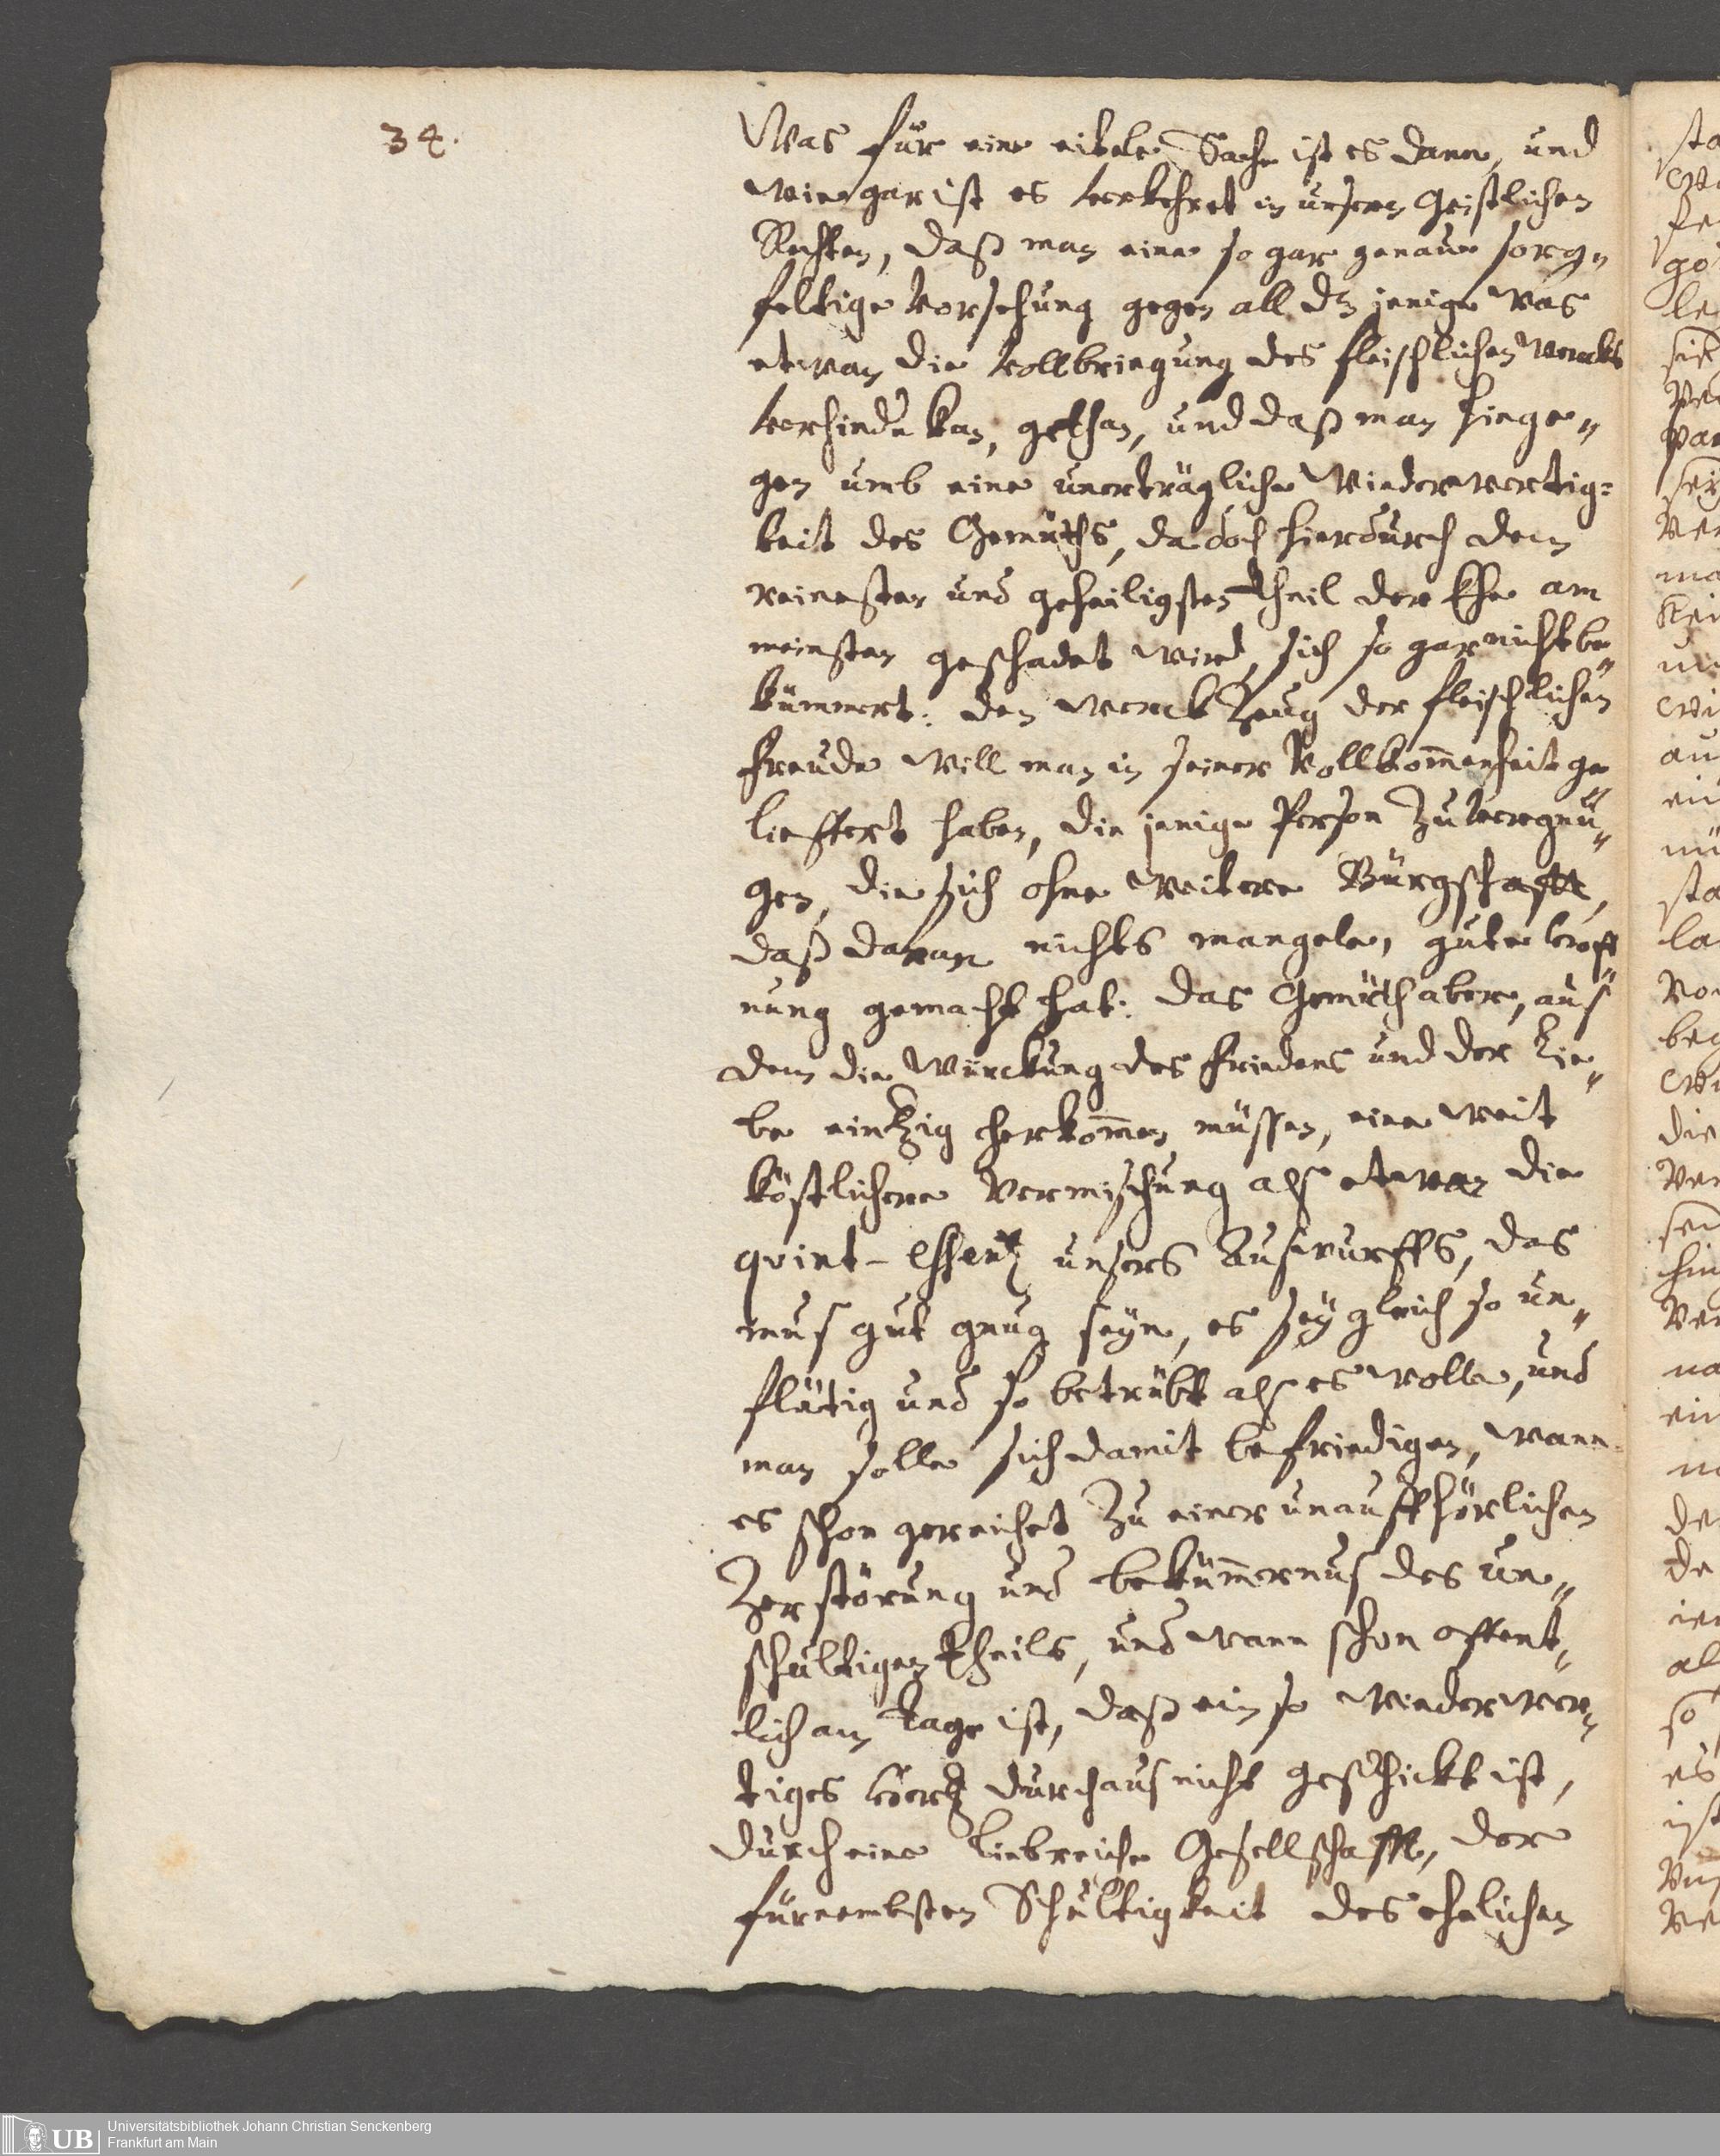 34.
Was für eine eitele Sache ist es dann, und
wie gar ist es verkehret in unsern Geistlichen
Rechten, daß man eine so gar genaue sorg„
feltige vorsehung gegen all dz jenige was
etwan die vollbringung des fleischlichen wercks
verhindn kan, gethan, und daß man hinge„
gen umb eine unerträgliche Wiederwertig=
keit des Gemüths, da doch hierdurch dem
reinesten und geheiligsten theil der Ehe am
meinsten geschadet wird, sich so gar nicht be„
kümmert: den werckzeug der fleischlichen
freude will man in seiner Vollkom̄enheit ge„
lieffert haben, die jenige Person zu vergnü„
gen, die sich ohne weitere Bürgschafft,
daß daran nichts mangele, gute hoff
nung gemacht hat: das Gemüth aber, aus
dem die würckung des friedens und der Lie„
be eintzig herkom̄en müssen, eine weit
köstlichere Vermischung als etwan die
quint-essentz unsers Auswurffs, das
mus gut gnug seyn, es sey gleich so un„
flätig und so betrübt als es wolle, und
man solle sich damit befriedigen, wann
es schon gereichet zu einer unauffhörlichen
Zerstörung und bekümernus des un„
schultigen theils, und wann schon offent„
lich am tage ist, daß ein so wiederwer„
tiges Hertz durchaus nicht geschickt ist,
durch eine liebreiche Gesellschafft, der
fürnembsten Schultigkeit des ehelichen
UB
Universitätsbibliothek Johann Christian Senckenberg
Frankfurt am Main